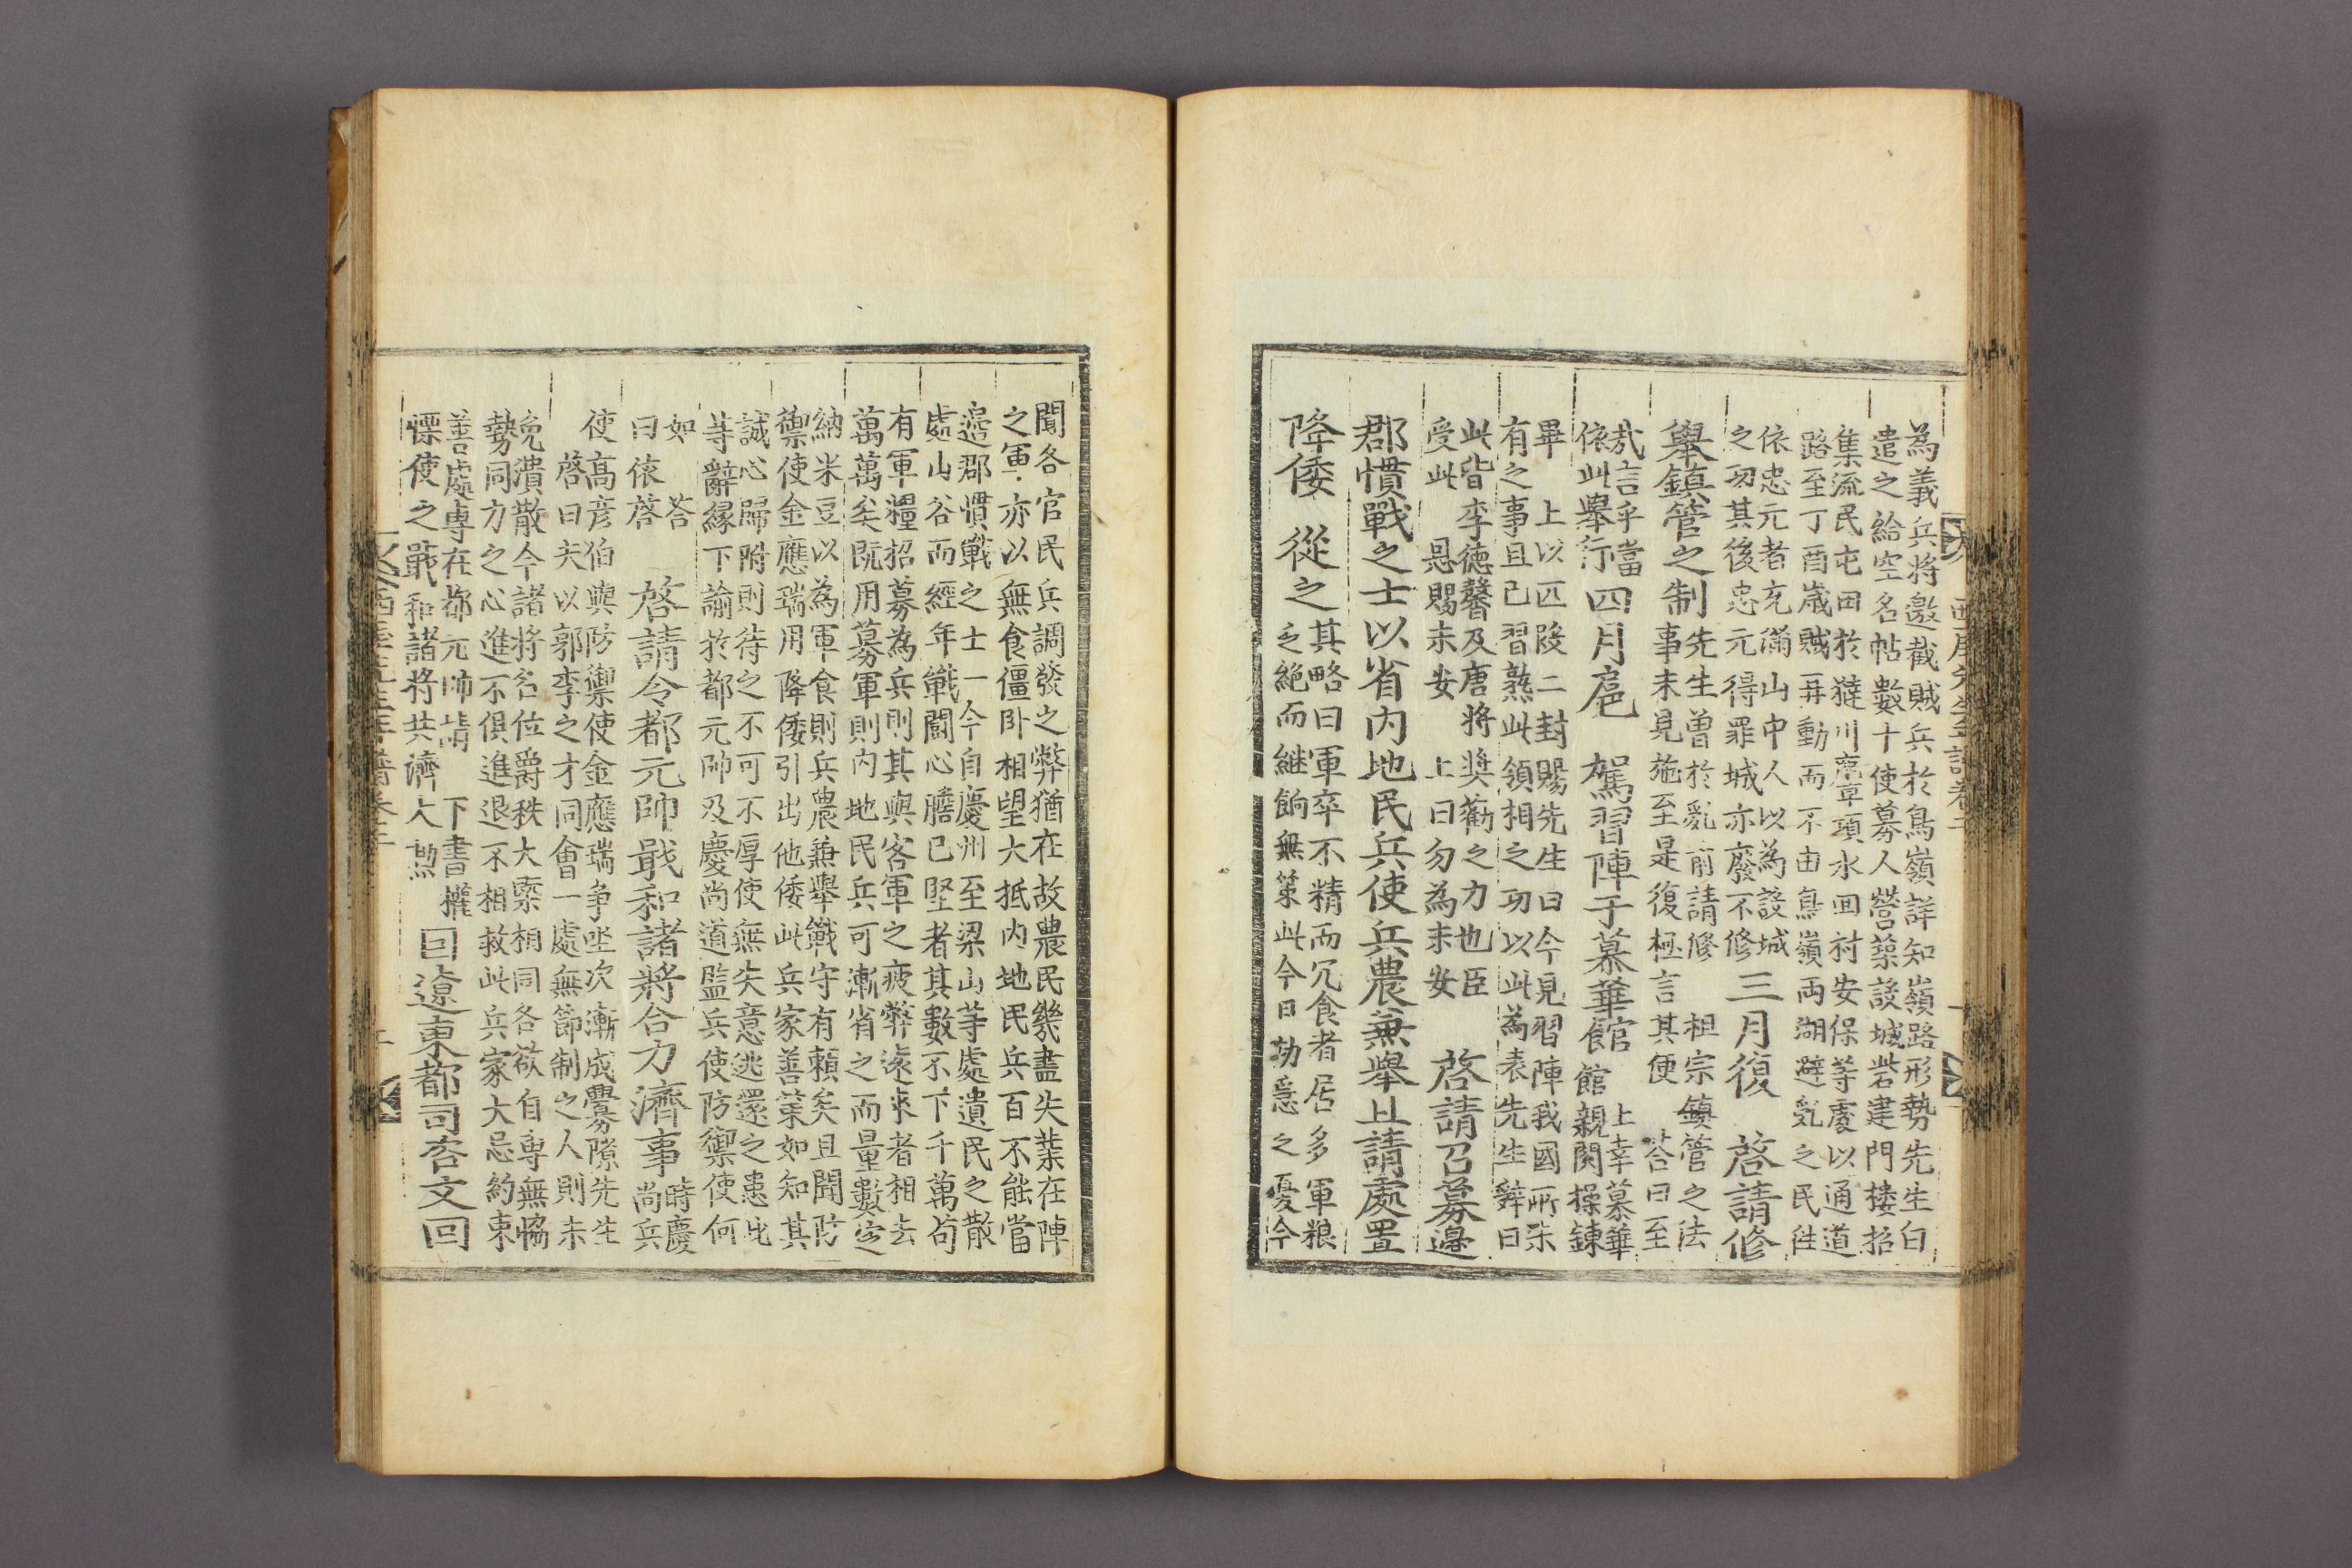 為義兵將邀截賊兵於鳥嶺詳知嶺路形勢先生白
遣之給空名帖數十使募人營築設城砦建門樓招
集流民屯田於㺚川庶草項水回村安保等處以通道
路至丁酉歲賊再動而不由鳥嶺兩湖避乱之民徃
依忠元者充滿山中人以為設城
之功其後忠元得罪城亦廢不修
三月復 啓請修
舉鎮管之制
先生曾於亂前請修 祖宗鎮管之法
事未見施至是復極言其便 荅曰至
㢤言乎當
依此舉行
四月扈 駕習陣于慕華館
上幸慕華
館親閱操鍊
畢 上以匹段二封賜先生曰今見習陣我國所未
有之事且已習熟此領相之功以此為表先生辭曰
此皆李德馨及唐將奬勸之力也臣
受此 恩賜未安 上曰勿為未安
啓請召募邊
郡慣戰之士以省內地民兵使兵農兼舉且請處置
降倭 從之
其略曰軍卒不精而冗食者居多軍粮
乏絶而継餉無策此今日切急之憂今
聞各官民兵調發之弊猶在故農民幾盡失業在陣
之軍亦以無食僵卧相望大抵內地民兵百不能當
邊郡慣戰之士一今自慶州至梁山等處遺民之散
處山谷而經年戰鬪心膽已堅者其數不下千萬苟
有軍糧招募為兵則其與客軍之疲弊遠來者相去
萬萬矣既用募軍則內地民兵可漸省之而量數定
納米豆以為軍食則兵農兼舉戰守有賴矣且聞防
禦使金應瑞用降倭引出他倭此兵家善策如知其
誠心歸附則待之不可不厚使無失意逃還之患此
等辭緣下諭於都元帥及慶尙道監兵使防禦使何
如 荅
曰依啓
啓請令都元帥戢和諸將合力濟事
時慶
尙兵
使高彦伯與防禦使金應瑞爭坐次漸成釁隙先生
啓曰夫以郭李之才同會一處無節制之人則未
免潰散今諸將名位爵秩大槩相同各欲自專無恊
勢同力之心進不俱進退不相救此兵家大忌約束
善處專在都元帥請 下書權
慄使之戢和諸將共濟大勲
回遼東都司咨文回